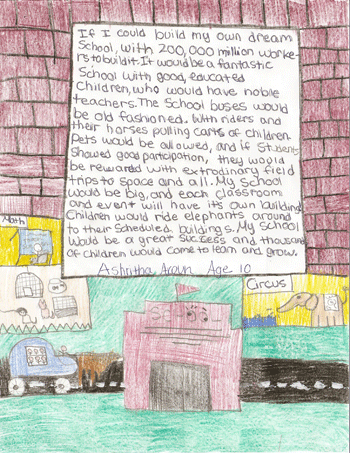 If I could build my own dream
School, with 200,000 million worke-
rs to build it. It would be a fantastic
School with good, educated
Children, who would have noble
teachers. The School buses would
be old fashioned. With riders and
their horses pulling carts of children
Pets would be allowed, and if Students
Showed good participation, they would
be rewarded with extrodinary field
trips to space and all. My School
would be big, and each classroom
and event will have its own building
Children would ride elephants around
to their Scheduled buildings. My School
would be a great success and thousands
of children would come to learn and grow.
Ashritha Arun Age 10
Math
Circus